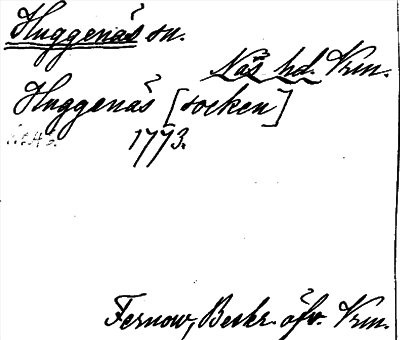 Huggenäs sn.
Näs hd. Vrm.
Huggenäs [socken]
1773.
Fernow, Beskr. öfv. Vrm.